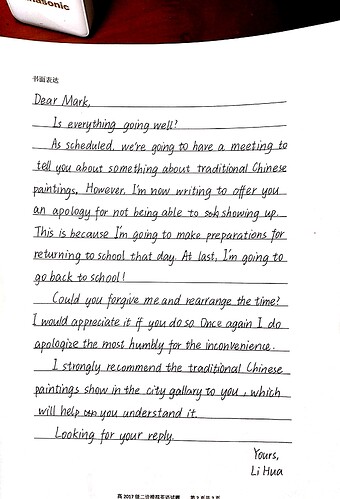 nasonic
书面表达
Dear Mark,
Is everything going well?
As scheduled, we're going to have a meeting to
tell you about something about traditional Chinese
paintings. However, I'm now writing to offer you
an apology for not being able to showing up.
This is because I'm going to make preparations for
returning to school that day. At last, I'm going to
go back to school!
Could you forgive me and rearrange the time?
I would appreciate it if you do so. Once again I do
apologize the most humbly for the inconvenience.
I strongly recommend the traditional Chinese
paintings show in the city gallary to you, which
will help you understand it.
Looking for your reply.
Yours,
Li Hua
高2017级二诊模拟英语试题 第2页共2页